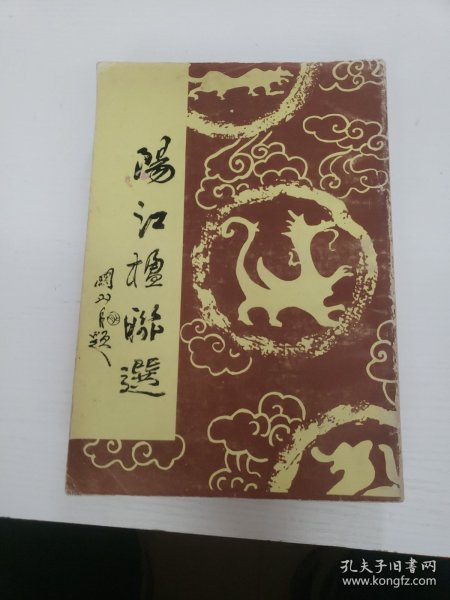 陽江楹聯選
關山月題
孔夫子旧书网
www.kongfz.com